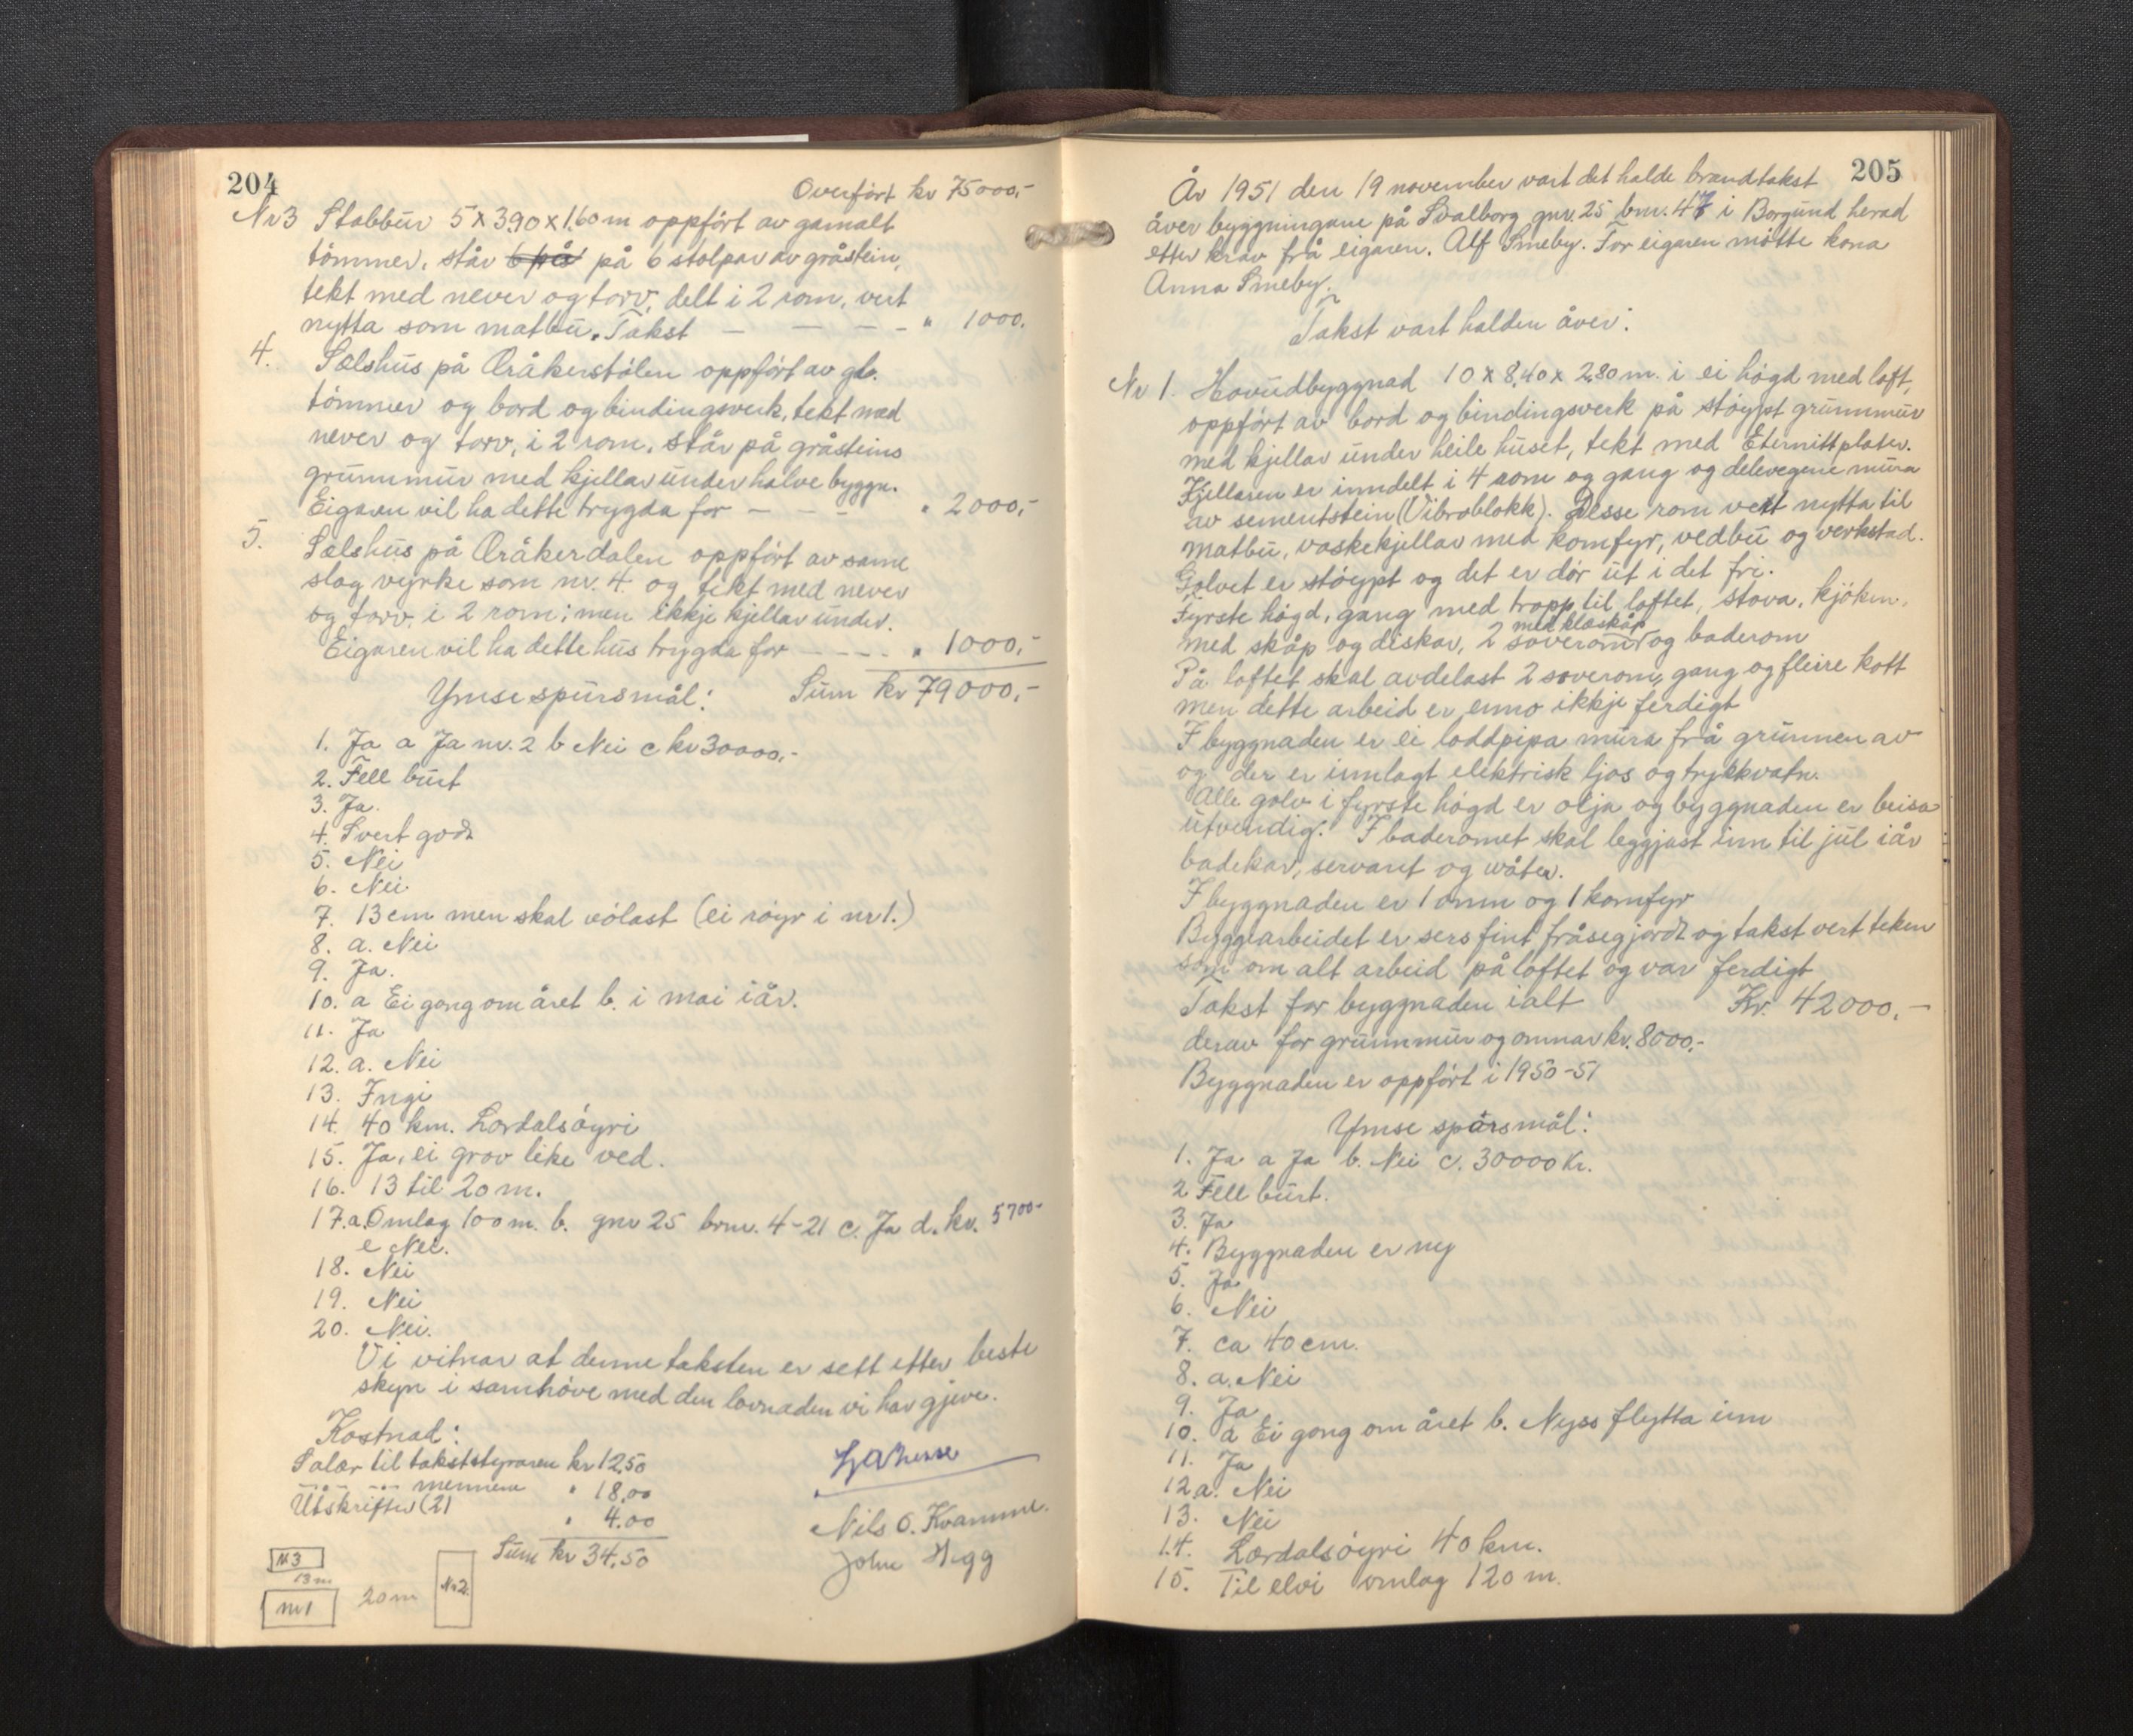 204
Overført kr 75000,-
Nr 3 Stabbur 5 x 3,90 x 1,60 m oppført av gamalt
tømmer, står 6 på på 6 stolpar av gråstein,
tekt med never og torv, delt i 2 rom, vert
nytta som matbu. Takst — — — - " 1000.
4. Sælshus på Øråkerstølen oppført av gl.
tømmer og bord og bindingsverk, tekt med
never og torv, i 2 rom, står på gråsteins
grunnmur med kjellar under halve byggn.
Eigaren vil ha dette trygda for — - - " 2000,-
5. Sælshus på Øråkerdalen oppført av same
slag vyrke som nr. 4 og tekt med never
og torv, i 2 rom; men ikkje kjellar under.
Eigaren vil ha dette hus trygda for — - - - " 1000,-
Ymse spursmål: Sum kr 79000,-
1. Ja a Ja nr. 2 b Nei c kr 30000,-
2. Fell burt
3. Ja.
4. Svert god
5. Nei
6. Nei
7. 13 cm men skal vølast (ei røyr i nr 1.)
8. a. Nei
9. Ja.
10. a Ei gong om året b. i mai iår.
11. Ja
12. a. Nei
13. Ingi
14. 40 km. Lærdalsøyri
15. Ja, ei grov like ved.
16. 13 til 20 m.
17. a. Omlag 100 m. b. gnr 25 brnr. 4-21 c. Ja d. kr. 5700-
e Nei.
18. Nei
19. Nei
20. Nei.
Vi vitnar at denne taksten er sett etter beste
skyn i samhøve med den lovnaden vi har gjeve.
Kostnad:
Salær til takststyraren kr 12,50
" " mennene " 18,00
Utskrifter (2) " 4.00
Sum kr 34,50
Nils O. Kvamme.
John Hegg
Nr 3
13 m
Nr 1
20 m
Nr 2.
205
År 1951 den 19 november vart det halde brandtakst
åver byggningane på Svalborg gnr. 25 bnr. 47 i Borgund herad
etter krav frå eigaren. Alf Smeby. For eigaren møtte kona
Anna Smeby.
Takst vart halden åver:
Nr 1. Hovudbyggnad 10 x 8,40 x 2,80 m. i ei høgd med loft,
oppført av bord og bindingsverk på støypt grunnmur
med kjellar under heile huset, tekt med Eternittplater.
Kjellaren er inndelt i 4 rom og gang og delevegene mura
av sementstein (Vibroblokk). Desse rom vert nytta til
matbu, vaskekjellar med komfyr, vedbu og verkstad.
Golvet er støypt og det er dør ut i det fri.
Fyrste høgd, gang med tropp til loftet, stova, kjøken,
med klæskåp
med skåp og diskar, 2 soverom og baderom
På loftet skal avdelast 2 soverom, gang og fleire kott
men dette arbeid er enno ikkje ferdigt
I byggnaden er ei loddpipa mura frå grunnen av
og der er innlagt elektrisk ljos og trykkvatn.
Alle golv i fyrste høgd er olja og byggnaden er beisa
utvendig. I baderomet skal leggjast inn til jul iår
badekar, servant og wåter.
I byggnaden er 1 omn og 1 komfyr
Byggjearbeidet er sers fint fråsegjordt og takst vert teken
som om alt arbeid på loftet og var ferdigt
Takst for byggnaden ialt Kr. 42000,-
derav for grunnmur og omnar kr. 8000,-
Byggnaden er oppført i 1950-51
Ymse spørsmål:
1. Ja a Ja b. Nei c. 30000 Kr.
2 Fell burt.
3. Ja
4. Byggnaden er ny
5. Ja
6. Nei
7. ca 40 cm.
8. a. Nei
9. Ja
10. a Ei gong om året b. Nyss flytta inn
11. Ja
12 a. Nei
13. Nei
14. Lærdalsøyri 40 km.
15. Til elvi omlag 120 m.